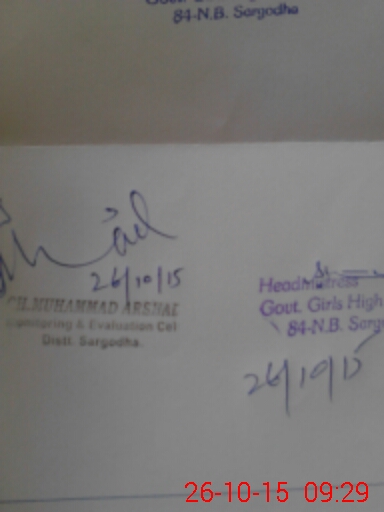 84-N.B. Sargodha
26/10/15
CH.MUHAMMAD ARSHAD
Monitoring & Evaluation Cel
Distt. Sargodha.
Headmistress
Govt. Girls High
84-N.B. Sarg
26/10/15
26-10-15 09:29